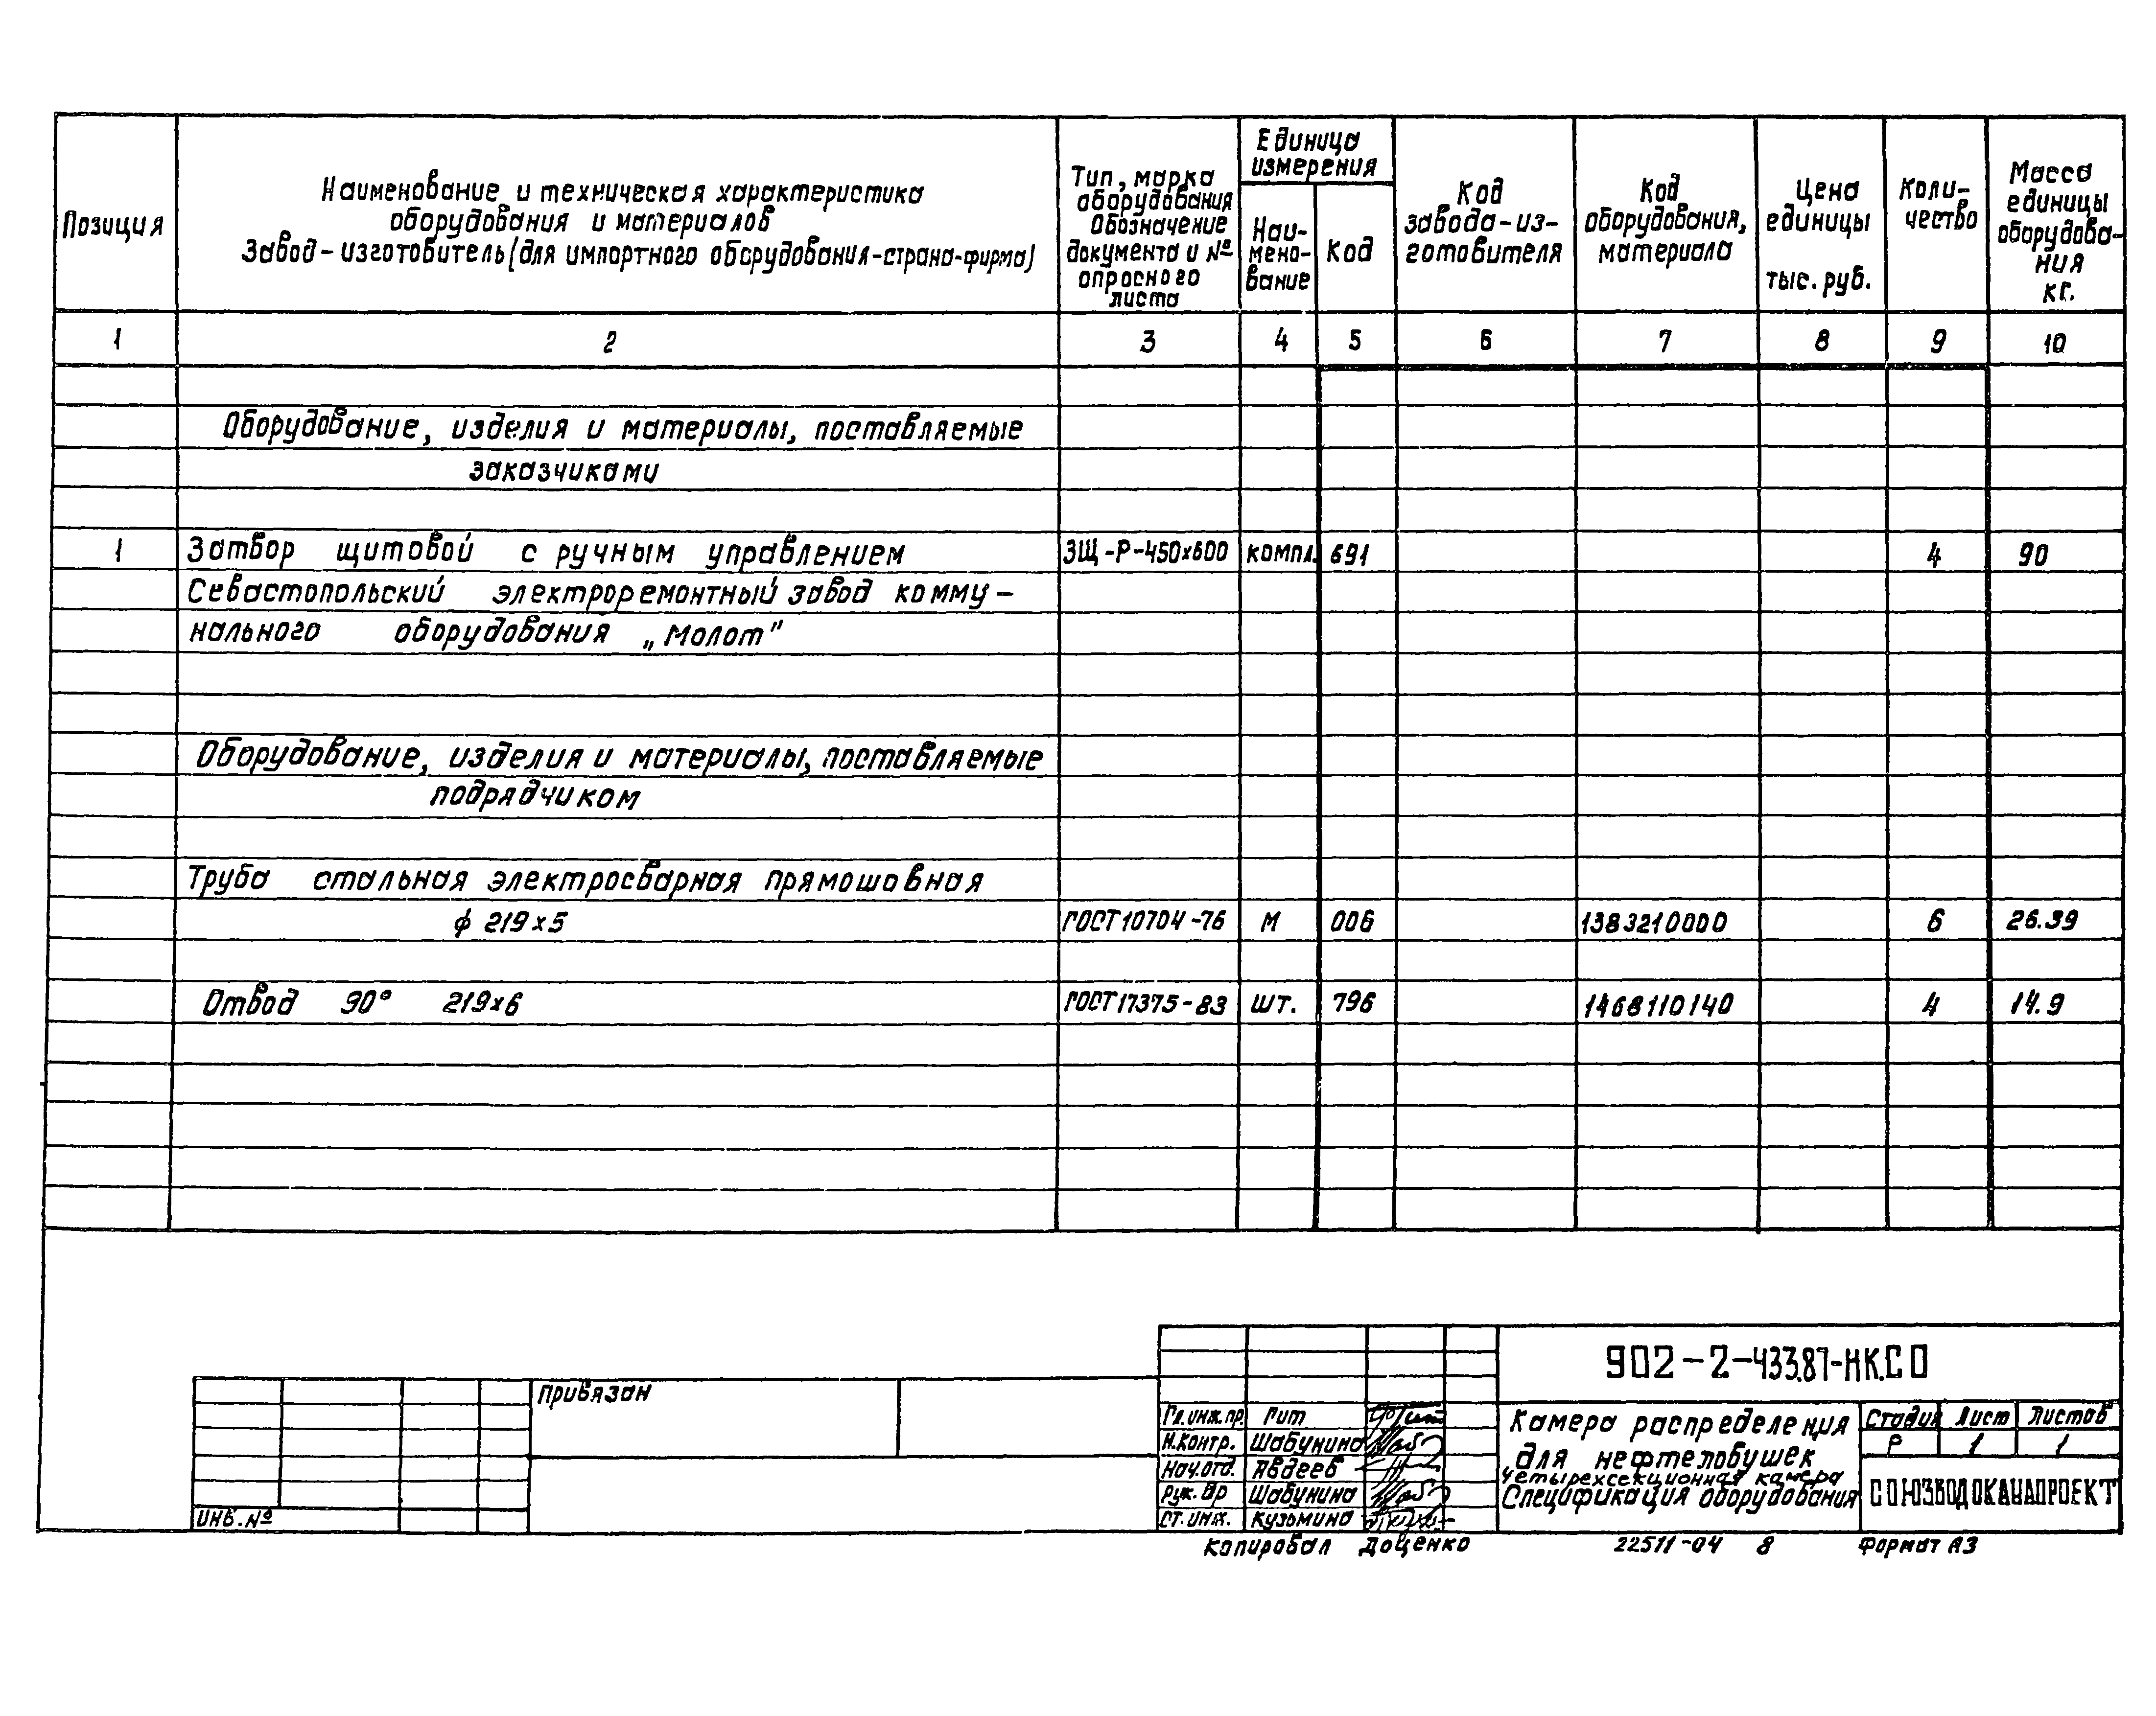 Позиция
Наименование и техническая характеристика
оборудования и материалов
Завод-изготовитель (для импортного оборудования-страна-фирма)
Тип, марка
оборудования
Обозначение
документа и №
опросного
листа
Единица
измерения
Наи-
мено-
вание
Код
Код
завода-из-
готовителя
Код
оборудования,
материала
Цена
единицы
тыс. руб.
Коли-
чество
Масса
единицы
оборудова-
ния
кг.
1 2 3 4 5 6 7 8 9 10
Оборудование, изделия и материалы, поставляемые
заказчиками
1 Затвор щитовой с ручным управлением ЗЩ-Р-450х600 компл. 691 4 90
Севастопольский электроремонтный завод комму-
нального оборудования „Молот"
Оборудование, изделия и материалы, поставляемые
подрядчиком
Труба стальная электросварная прямошовная
ф 219х5 ГОСТ 10704-76 М 006 1383210000 6 26.39
Отвод 90° 219х6 ГОСТ 17375-83 шт. 796 1468110140 4 14.9
Привязан
Инв. №
902-2-433.87-НК.СО
Гл. инж. пр. Гит
Н. контр. Шабунина
Нач. отд. Авдеев
Рук. гр Шабунина
Ст. инж. Кузьмина
Камера распределения
для нефтеловушек
Четырехсекционная камера
Спецификация оборудования
Стадия Лист Листов
Р 1 1
СОЮЗВОДОКАНАЛПРОЕКТ
Копировал Доценко 22511-04 8 Формат А3